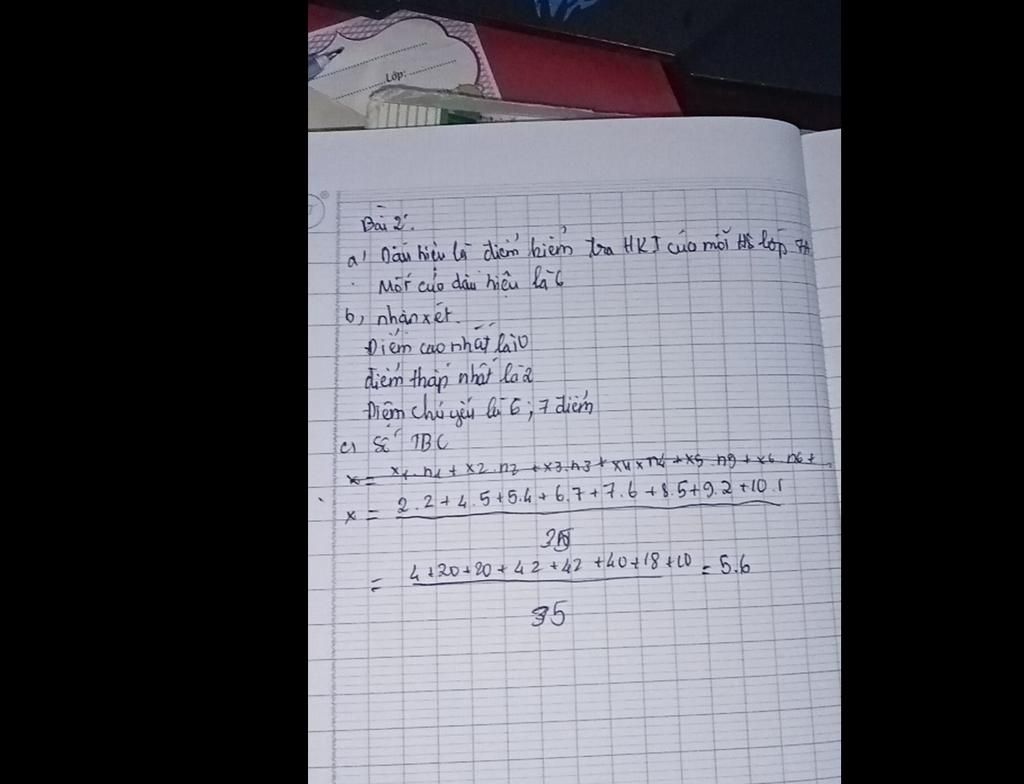 Lớp:
Bài 2:
a) Dấu hiệu là điểm kiểm tra HKI của mỗi HS lớp 7A
Mốt của dấu hiệu là 6
b, nhận xét.
Điểm cao nhất là 10
điểm thấp nhất là 2
Điểm chủ yếu là 6; 7 điểm
c) Số TBC
x = x1.n1 + x2.n2 + x3.n3 + x4 x n4 + x5.n5 + x6.n6 +
x = 2.2 + 4.5 + 5.4 + 6.7 + 7.6 + 8.5 + 9.2 + 10.1
35
= 4 + 20 + 20 + 42 + 42 + 40 + 18 + 10 = 5.6
35